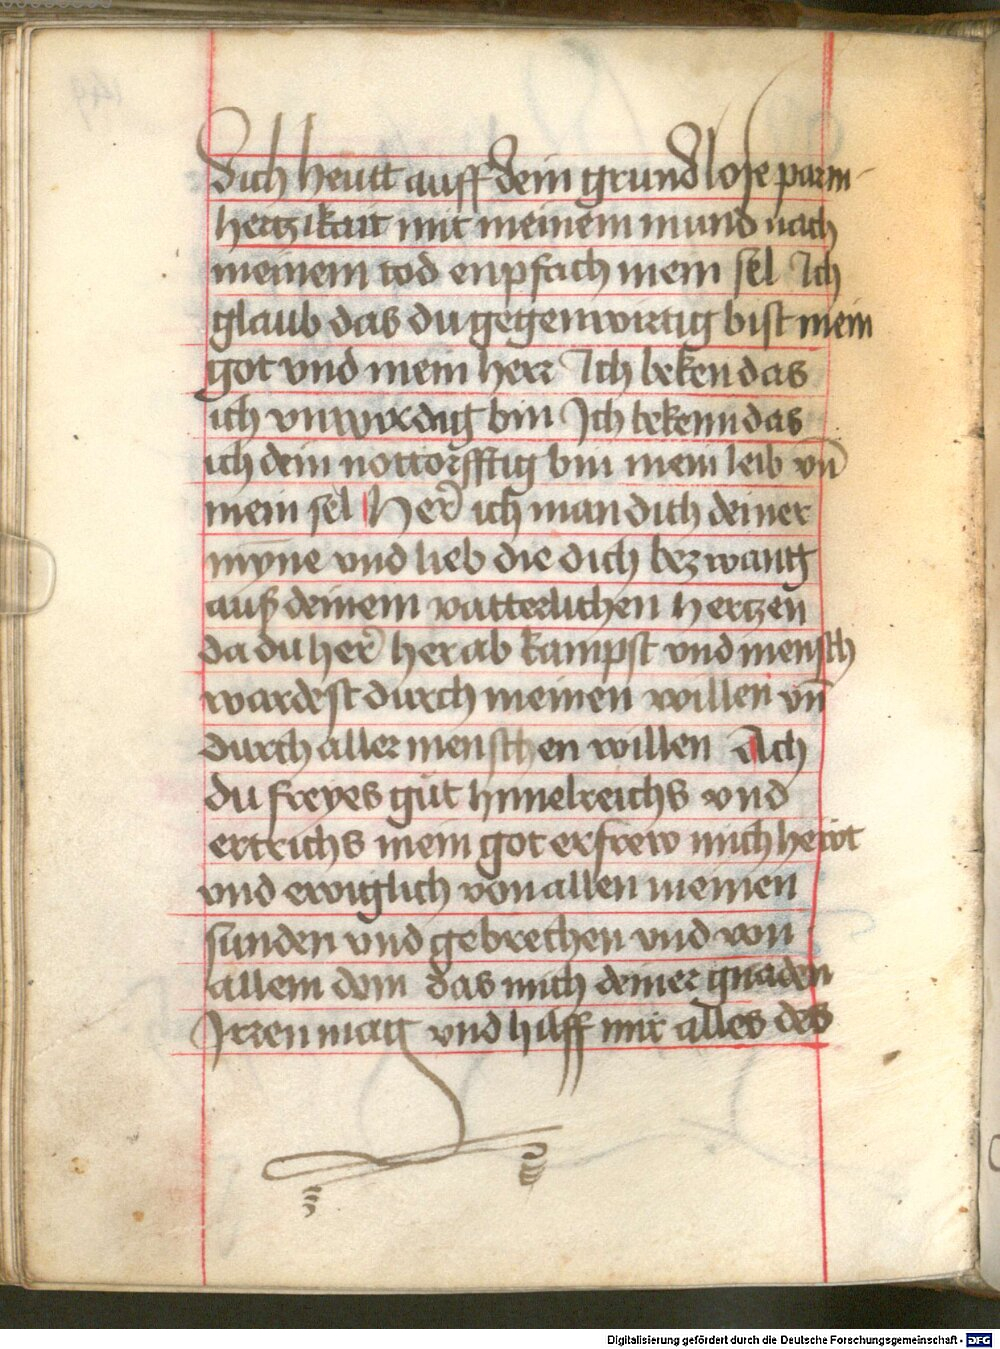 dich heutt auff dein grundlose parm-
hertzikait mit meinem mund nach
meinem tod enpfach mein sel Ich
glaub das du gegenwirtig bist mein
got vnd mein herr Ich beken das
ich vnwirdig bin Ich bekenn das
ich dein nottorfftig bin mein leib vn̄
mein sel Her̄ ich man dich deiner
myne vnd lieb die dich bezwang
auß deinem vatterlichen hertzen
da du her̄ herab kampst vnd mensch
wardest durch meinen willen vn̄
durch aller menschen willen Ach
du freyes gut himelreichs vnd
ertrichs mein got erfrew mich hewt
vnd ewiglich von allen meinen
sunden vnd gebrechen vnd von
allem dem das mich deiner gnaden
Irren mag vnd hilff mir alles des
Digitalisierung gefördert durch die Deutsche Forschungsgemeinschaft - DFG